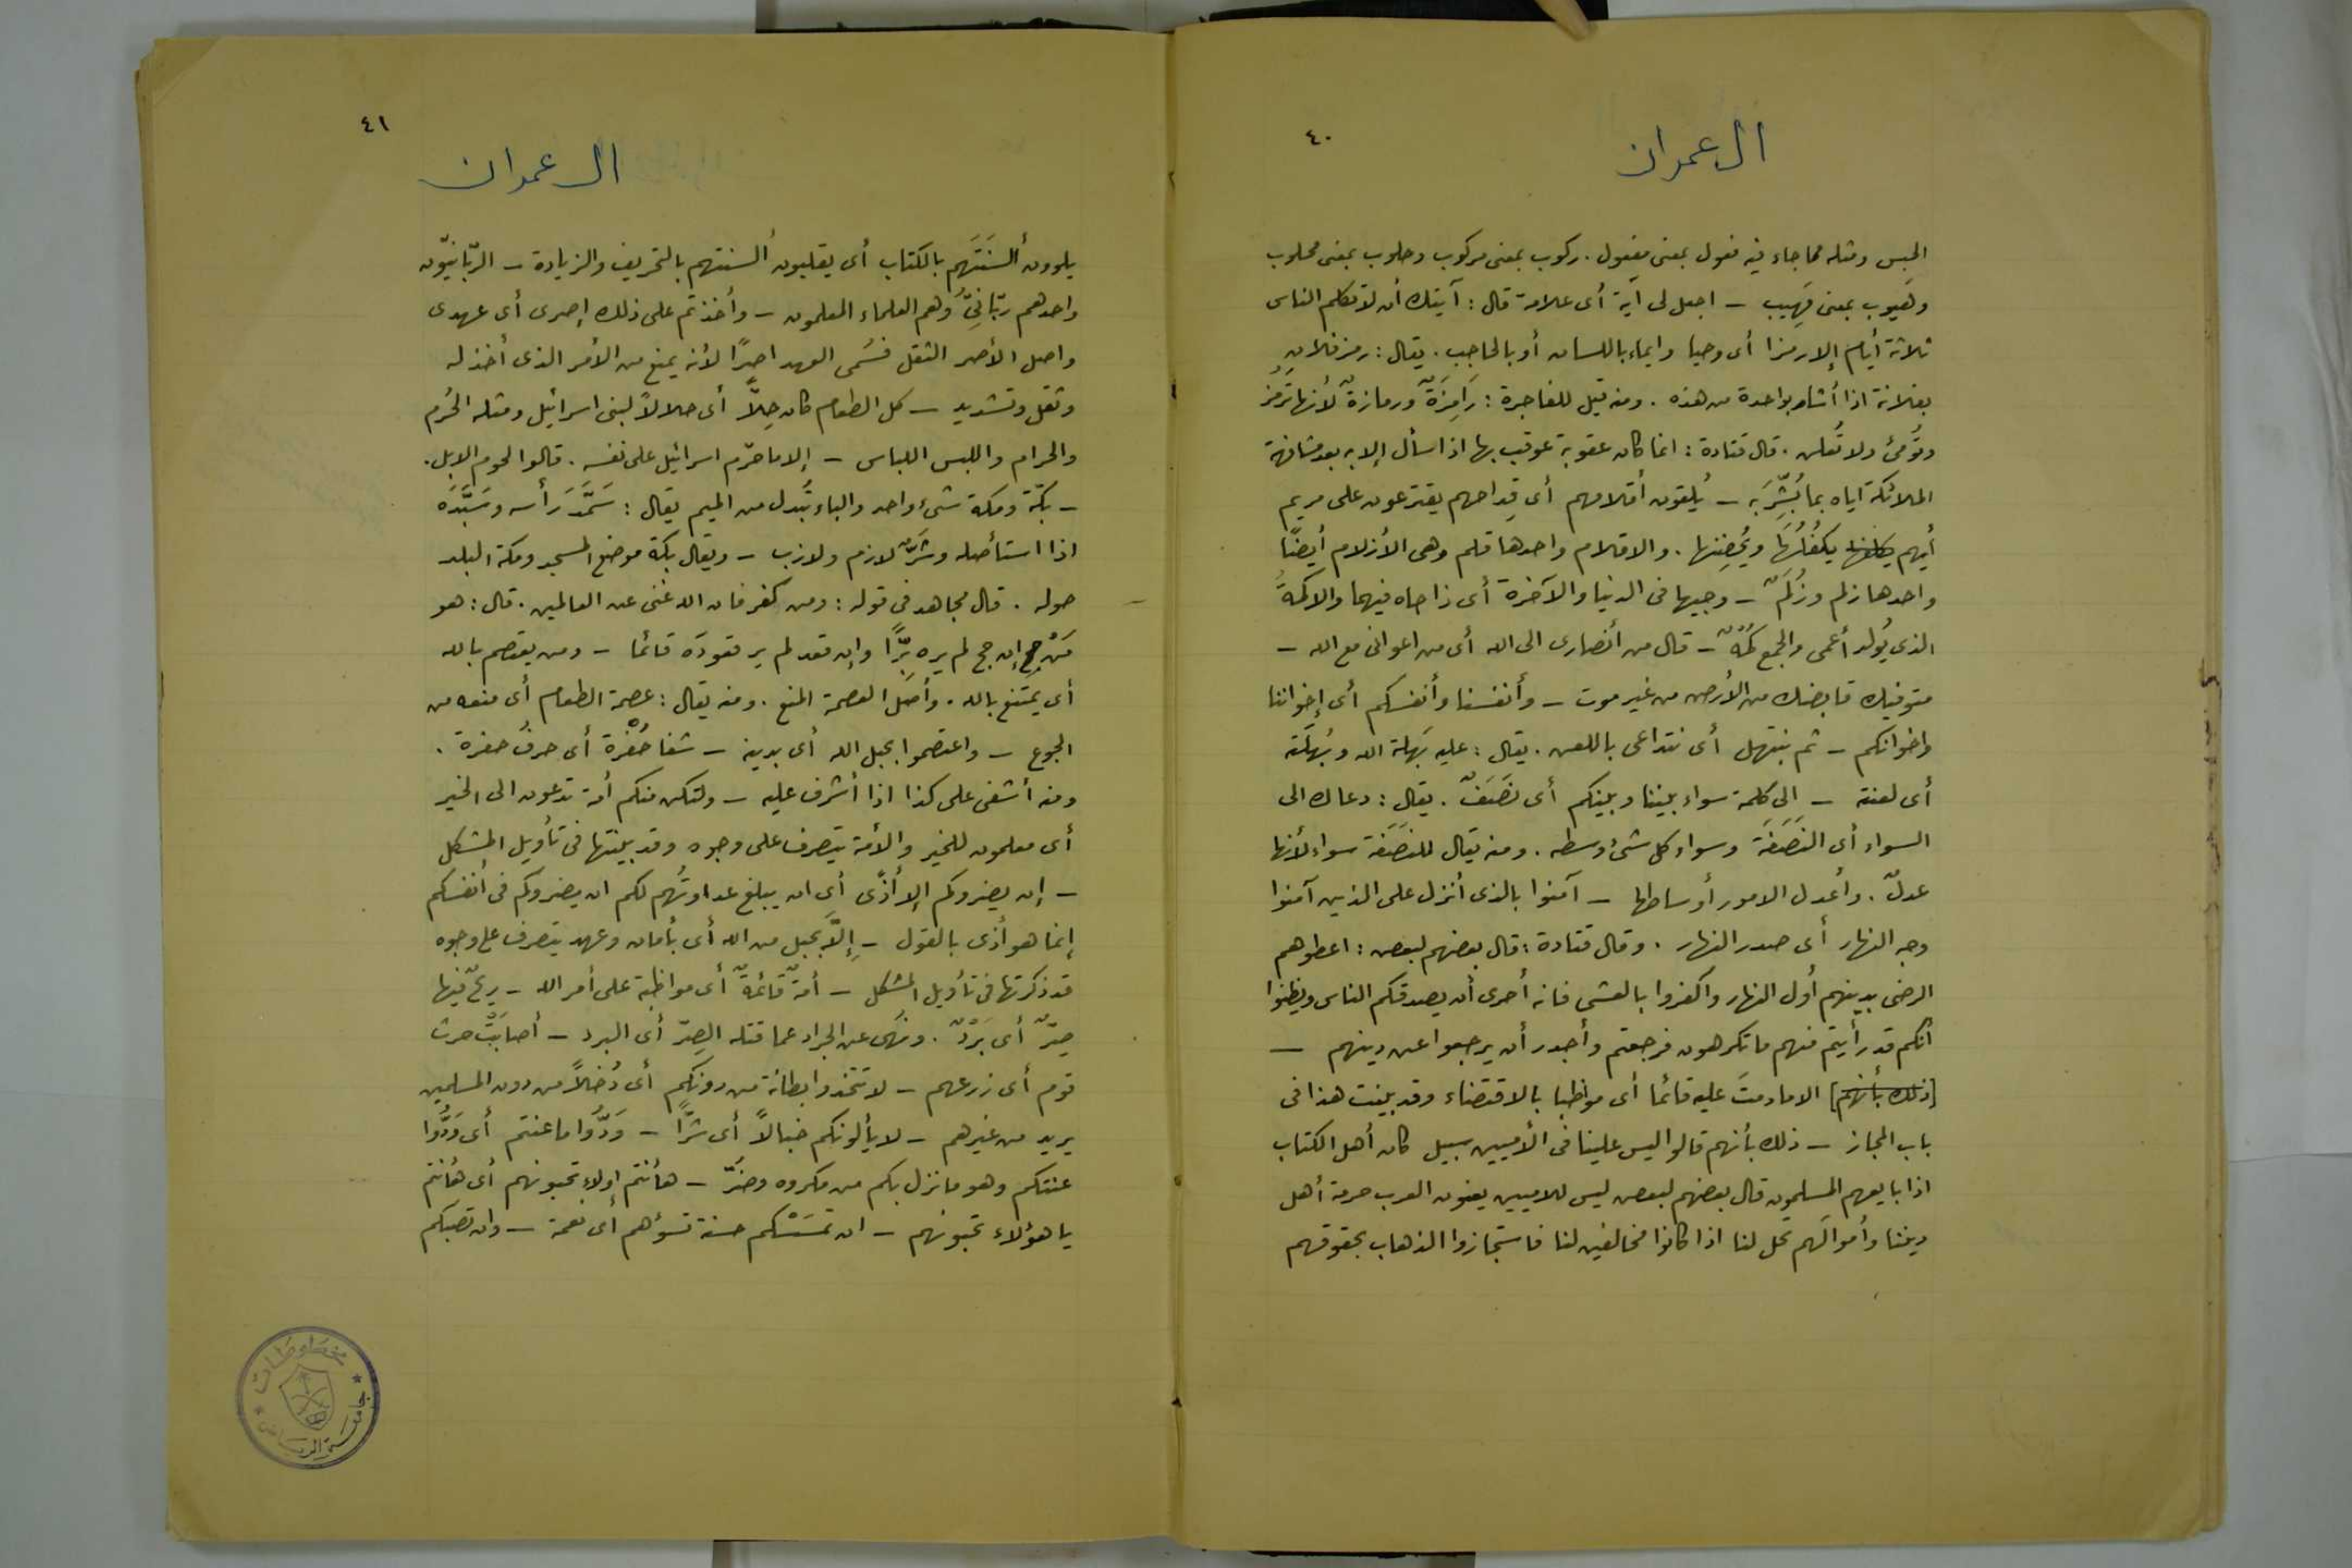 ٤٠
ال عمران
الحبس ومثله مما جاء فيه فعول بمعنى مفعول . ركوب بمعنى مركوب وحلوب بمعنى محلوب
وهَيوب بمعنى مَهيب – اجعل لى آية أى علامة قال : آيتك أن لا تكلم الناس
ثلاثة أيام إلا رمزا أى وحيا وايماء باللسان أو بالحاجب . يقال : رمز فلان
بفلانة اذا أشار بواحدة من هذه . ومنه قيل للفاجرة : رَامِزَةٌ ورمازةٌ لأنها تَرمُز
وتُومئ ولا تُعلن . قال قتادة : انما كان عقوبة عوقب بها اذا سأل إلا به بعد مشافهة
الملائكة اياه بما بُشِّرَ به – يُلقون أقلامهم أى قِداحهم يقترعون على مريم
أيهم يكفُلُهَا ويُحضِنها . والاقلام واحدها قلم وهى الأزلام أيضًا
واحدها زلم وزُلَمٌ – وجيها فى الدنيا والآخرة أى ذا جاه فيهما والاكمهُ
الذى يُولد أعمى والجمع كُمْهٌ – قال من أنصارى الى الله أى من اعوانى مع الله –
متوفيك قابضك من الأرض من غير موت – وأنفسنا وأنفسكم أى إخواننا
واخوانكم – ثم نبتهل أى نتداعى باللعن . يقال : عليه بَهلة الله وبُهلَته
أى لعنته – الى كلمة سواء بيننا وبينكم أى نَصَفٌ . يقال : دعاك الى
السواء أى النَصَفَة وسواء كل شئ وسطه . ومنه يقال للنَصَفة سواء لأنها
عدلٌ . وأعدل الامور أوساطها – آمنوا بالذى أنزل على الذين آمنوا
وجه النهار أى صدر النهار . وقال قتادة : قال بعضهم لبعض : اعطوهم
الرضى بدينهم أول النهار واكفروا بالعشى فانه أحرى أن يصدقكم الناس ويظنوا
أنكم قد رأيتم فيهم ما تكرهون فرجعتم وأجدر أن يرجعوا عن دينهم –
[ذلك بأنهم] الا ما دمتَ عليه قائما أى مواظبا بالاقتضاء وقد بينت هذا فى
باب المجاز – ذلك بأنهم قالوا ليس علينا فى الأميين سبيل كان أهل الكتاب
اذا بايعهم المسلمون قال بعضهم لبعض ليس للاميين يعنون العرب حرمة أهل
ديننا وأموالَهم تحل لنا اذا كانوا مخالفين لنا فاستجازوا الذهاب بحقوقهم
٤١
ال عمران
يلوون ألسنَتَهم بالكتاب أى يقلبون ألسنتهم بالتحريف والزيادة – الربّانيّون
واحدهم ربّانِىّ وهم العلماء المعلمون – وأخذتم على ذلك إصرى أى عهدى
واصل الأصر الثقل فسُمى العهد اصرًا لأنه يمنع من الأمر الذى أخذ له
وثقل وتشديد – كل الطعام كان حِلاًّ أى حلالاً لبنى اسرائيل ومثله الحُرم
والحرام واللبس اللباس – إلا ما حرّم اسرائيل على نفسه . قالوا لحوم الابل .
– بكّة ومكة شىء واحد والباء تُبدل من الميم يقال : سَمَّدَ رَأسه وسَبَّدَه
اذا استأصله وشَرٌّ لازم ولازب – ويقال بكة موضع المسجد ومكة البلد
حوله . قال مجاهد فى قوله : ومن كفر فان الله غنى عن العالمين . قال : هو
مَنْ حج إن حج لم يره بِرًّا وإن قعد لم ير قعودَه قائما – ومن يعتصم بالله
أى يمتنع بالله . وأصل العصمة المنع . ومنه يقال : عصمة الطعام أى منعه من
الجوع – واعتصموا بحبل الله أى بدينه – شفا حُفْرة أى حرف حفرة .
ومنه أشفى على كذا اذا أشرف عليه – ولتكن منكم أمة تدعون الى الخير
أى معلمون للخير والأمة يتصرف على وجوه وقد بينتها فى تأويل المشكل
– إن يضروكم إلا أذًى أى ان يبلغ عداوتُهم لكم ان يضروكم فى أنفسكم
إنما هو أذى بالقول – إلاّ بحبل من الله أى بأمان وعهد يتصرف على وجوه
قد ذكرتها فى تأويل المشكل – أمةٌ قائمةٌ أى مواظبة على أمر الله – ريحٌ فيها
صِرٌّ أى بَرْدٌ . ونهى عن الجراد عما قتله الصِرّ أى البرد – أصابَتْ حرث
قوم أى زرعهم – لا تتخذوا بطانة من دونكم أى دُخلاً من دون المسلمين
يريد من غيرهم – لا يألونكم خبالاً أى شرًّا – وَدُّوا ما عنتم أى وَدُّوا
عنتكم وهو ما نزل بكم من مكروه وضَرّ – هأنتم اولاء تحبونهم أى هأنتم
يا هؤلاء تحبونهم – ان تمسَسْكم حسنة تسؤهم أى نعمة – وان تصبكم
مخطوطات
جامعة الرياض